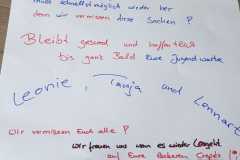 schnellstmöglich wieder her
denn wir vermissen diese Sachen ?
Bleibt gesund und hoffentlich
bis ganz bald Eure Jugendwarte
Leonie, Tanja und Lennart
Wir vermissen Euch alle ?
Wir freuen uns wenn es wieder losgeht
auf Eure leckeren Crepes